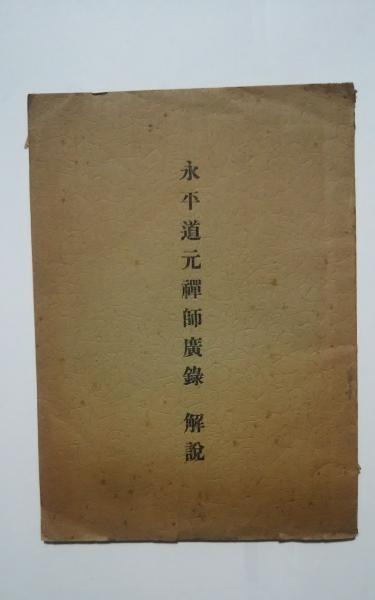 永平道元禪師廣錄 解說